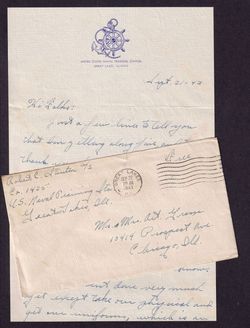 UNITED STATES NAVAL TRAINING STATION
GREAT LAKES, ILLINOIS
Sept. 21-43
Hi Folks:
Just a few lines to tell you
that I'm getting along fine, and to
thank you
Robert C.
Co. 1425
U.S. Naval Training Sta
Great Lakes, Ill.
GREAT LAKES
1943
Free
Mr. & Mrs. Art
10414 Prospect Ave
Chicago, Ill.
n't done very much
yet except take our physical and
get our uniforms, which is an